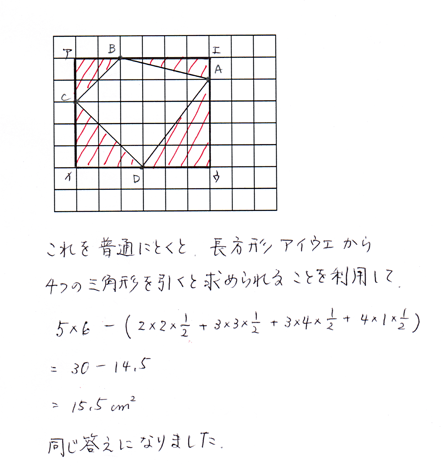 ア B エ
A
C
イ D ウ
これを普通にとくと、長方形アイウエから
4つの三角形を引くと求められることを利用して、
5×6 − (2×2×1/2 + 3×3×1/2 + 3×4×1/2 + 4×1×1/2)
= 30 − 14.5
= 15.5 cm²
同じ答えになりました。